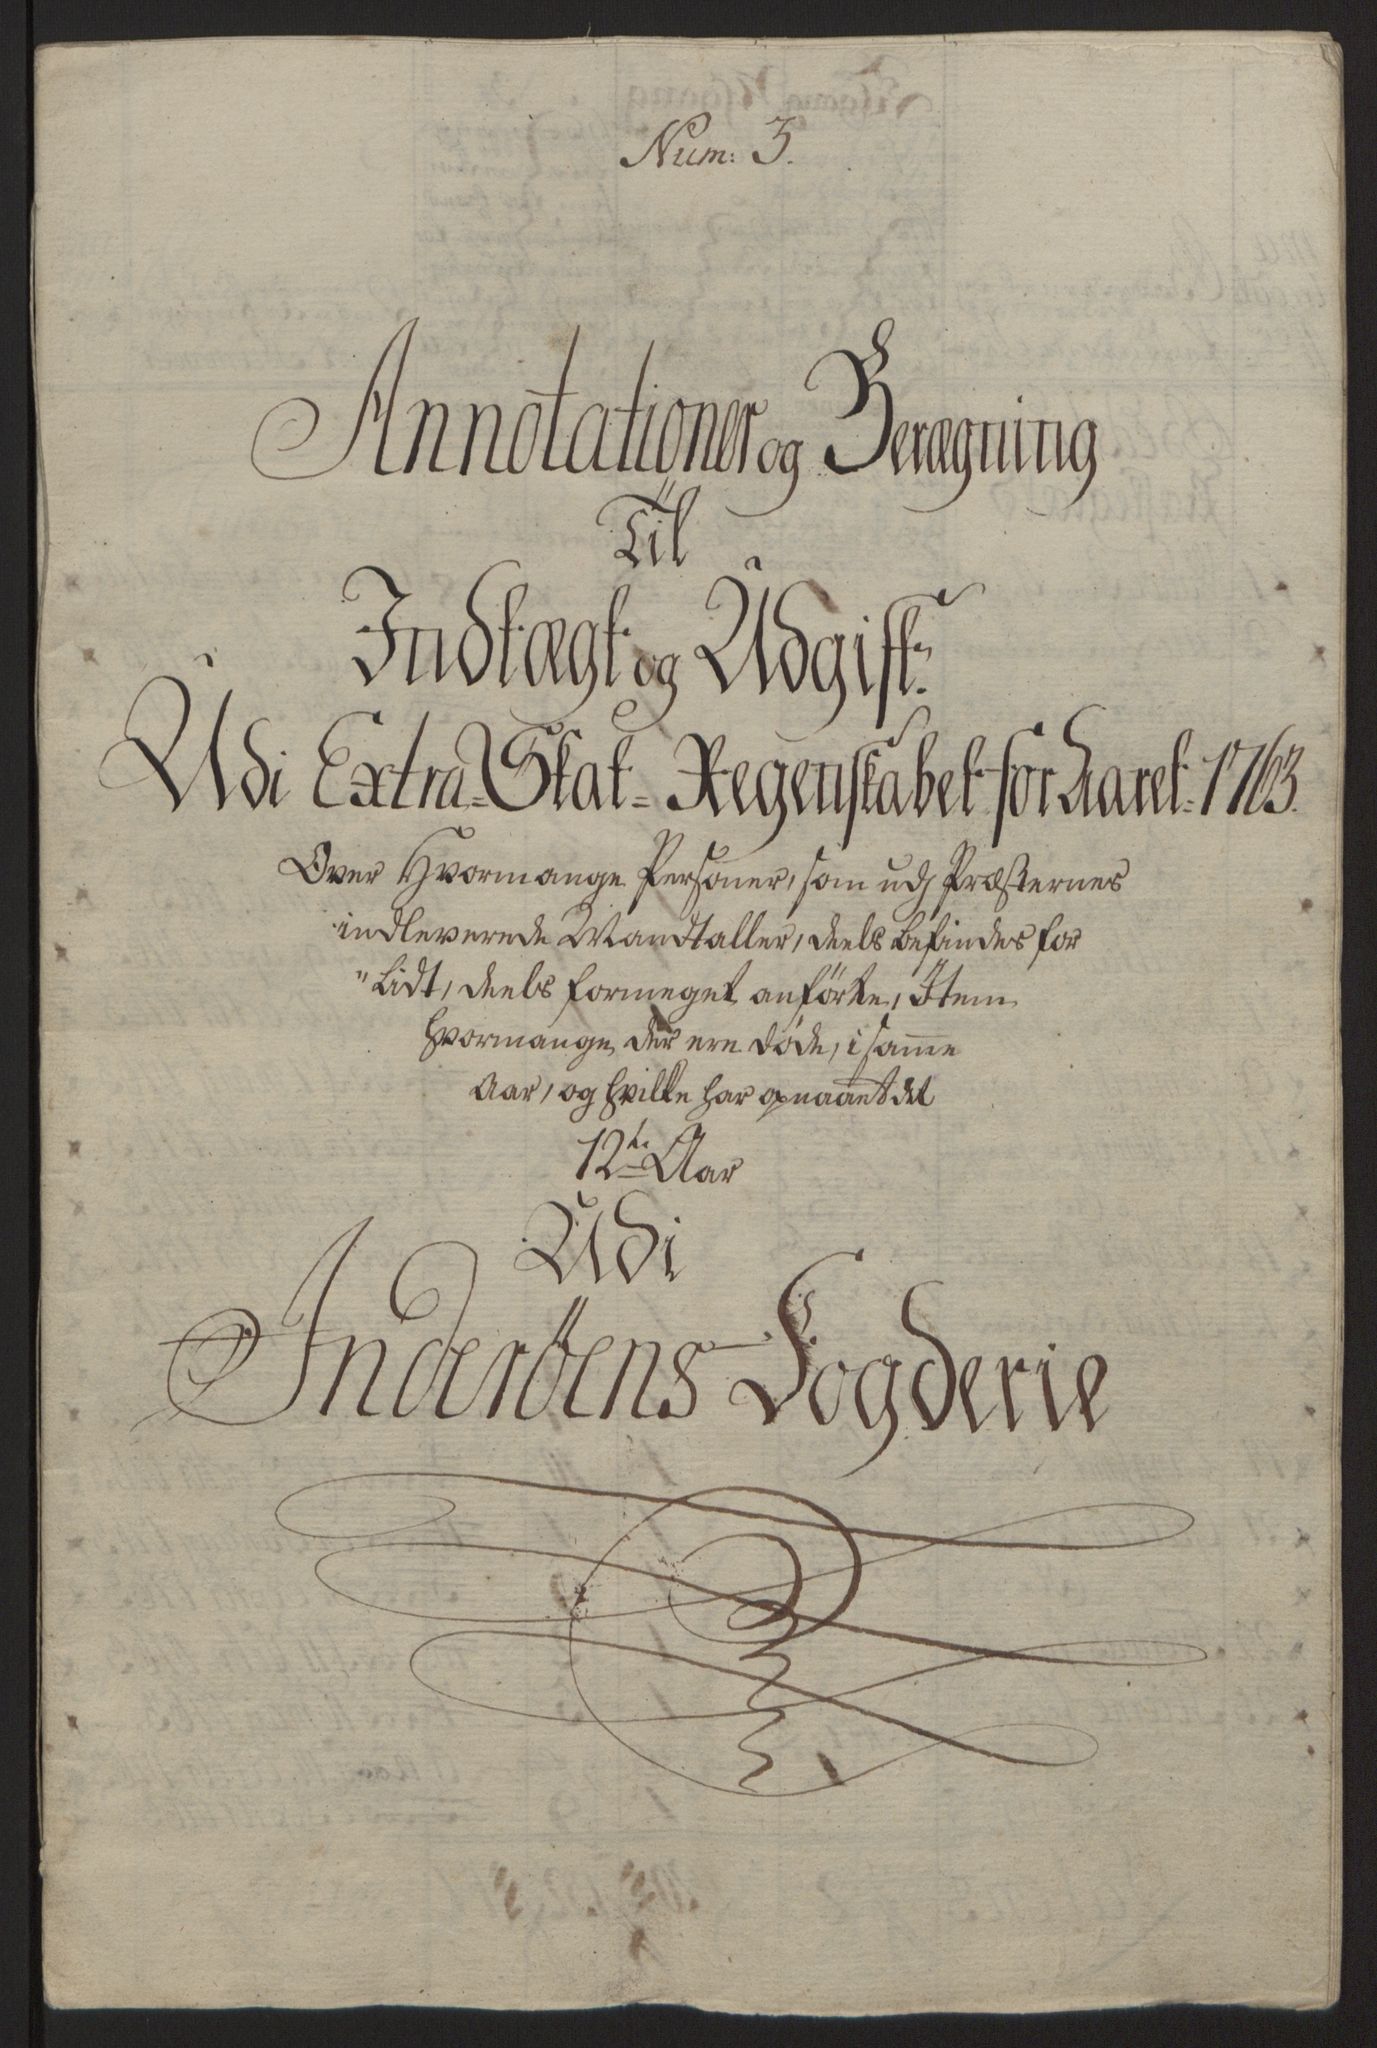 Num: 3.
Annotationer og Berægning
Til
Indtægt og Udgift
Udi Extra-Skat-Regenskabet for Aaret 1763.
Over Hvormange Personer, som udj Præsternes
indleverede Mandtaller, deels befindes for
"lidt, deels formeget anförte, Item
hvormange der ere døde, i same
Aar, og hvilke har opnaaet det
12te Aar
Udi
Inderöens Fogderie